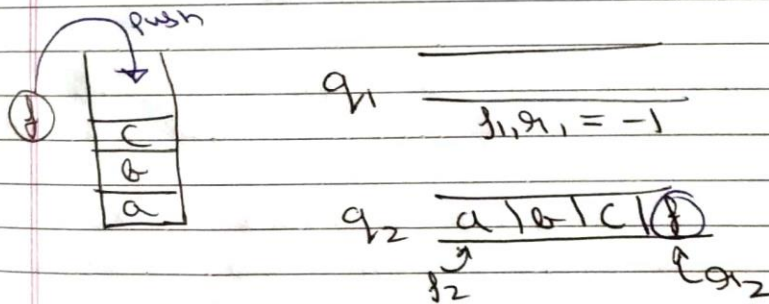 push
f
c
b
a
q₁
f₁, r₁ = -1
q₂ a | b | c | f
f₂ r₂